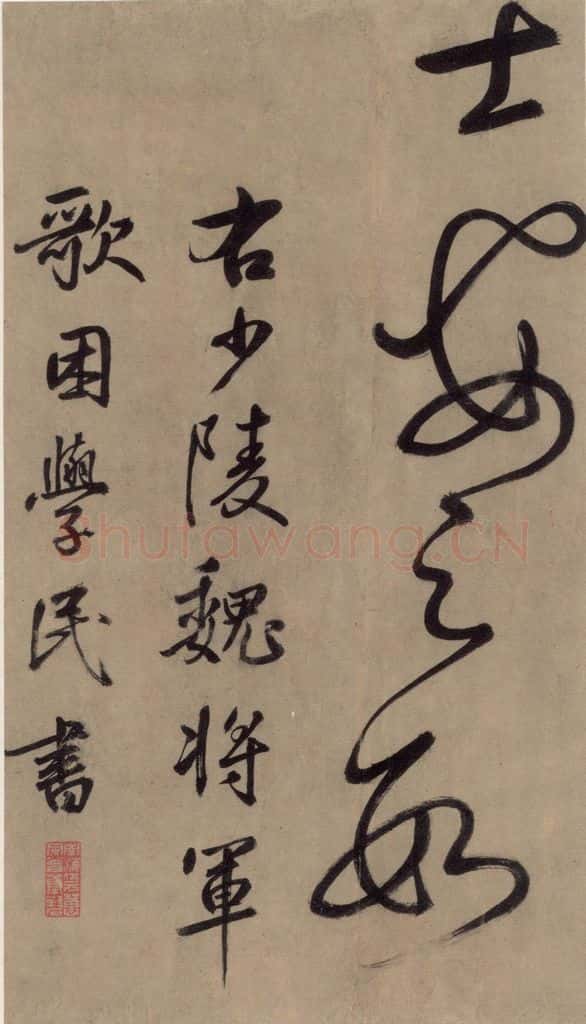 士安足數
右少陵魏将軍
歌困學民書
Shufawang.CN